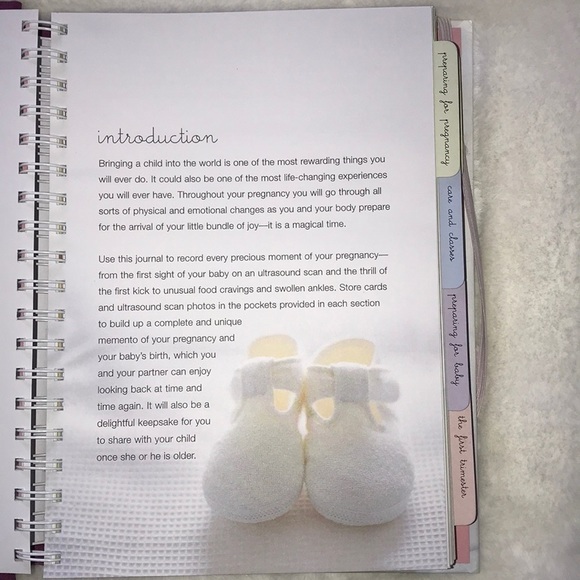 introduction
Bringing a child into the world is one of the most rewarding things you
will ever do. It could also be one of the most life-changing experiences
you will ever have. Throughout your pregnancy you will go through all
sorts of physical and emotional changes as you and your body prepare
for the arrival of your little bundle of joy—it is a magical time.
Use this journal to record every precious moment of your pregnancy—
from the first sight of your baby on an ultrasound scan and the thrill of
the first kick to unusual food cravings and swollen ankles. Store cards
and ultrasound scan photos in the pockets provided in each section
to build up a complete and unique
memento of your pregnancy and
your baby's birth, which you
and your partner can enjoy
looking back at time and
time again. It will also be a
delightful keepsake for you
to share with your child
once she or he is older.
preparing for pregnancy
care and classes
preparing for baby
the first trimester